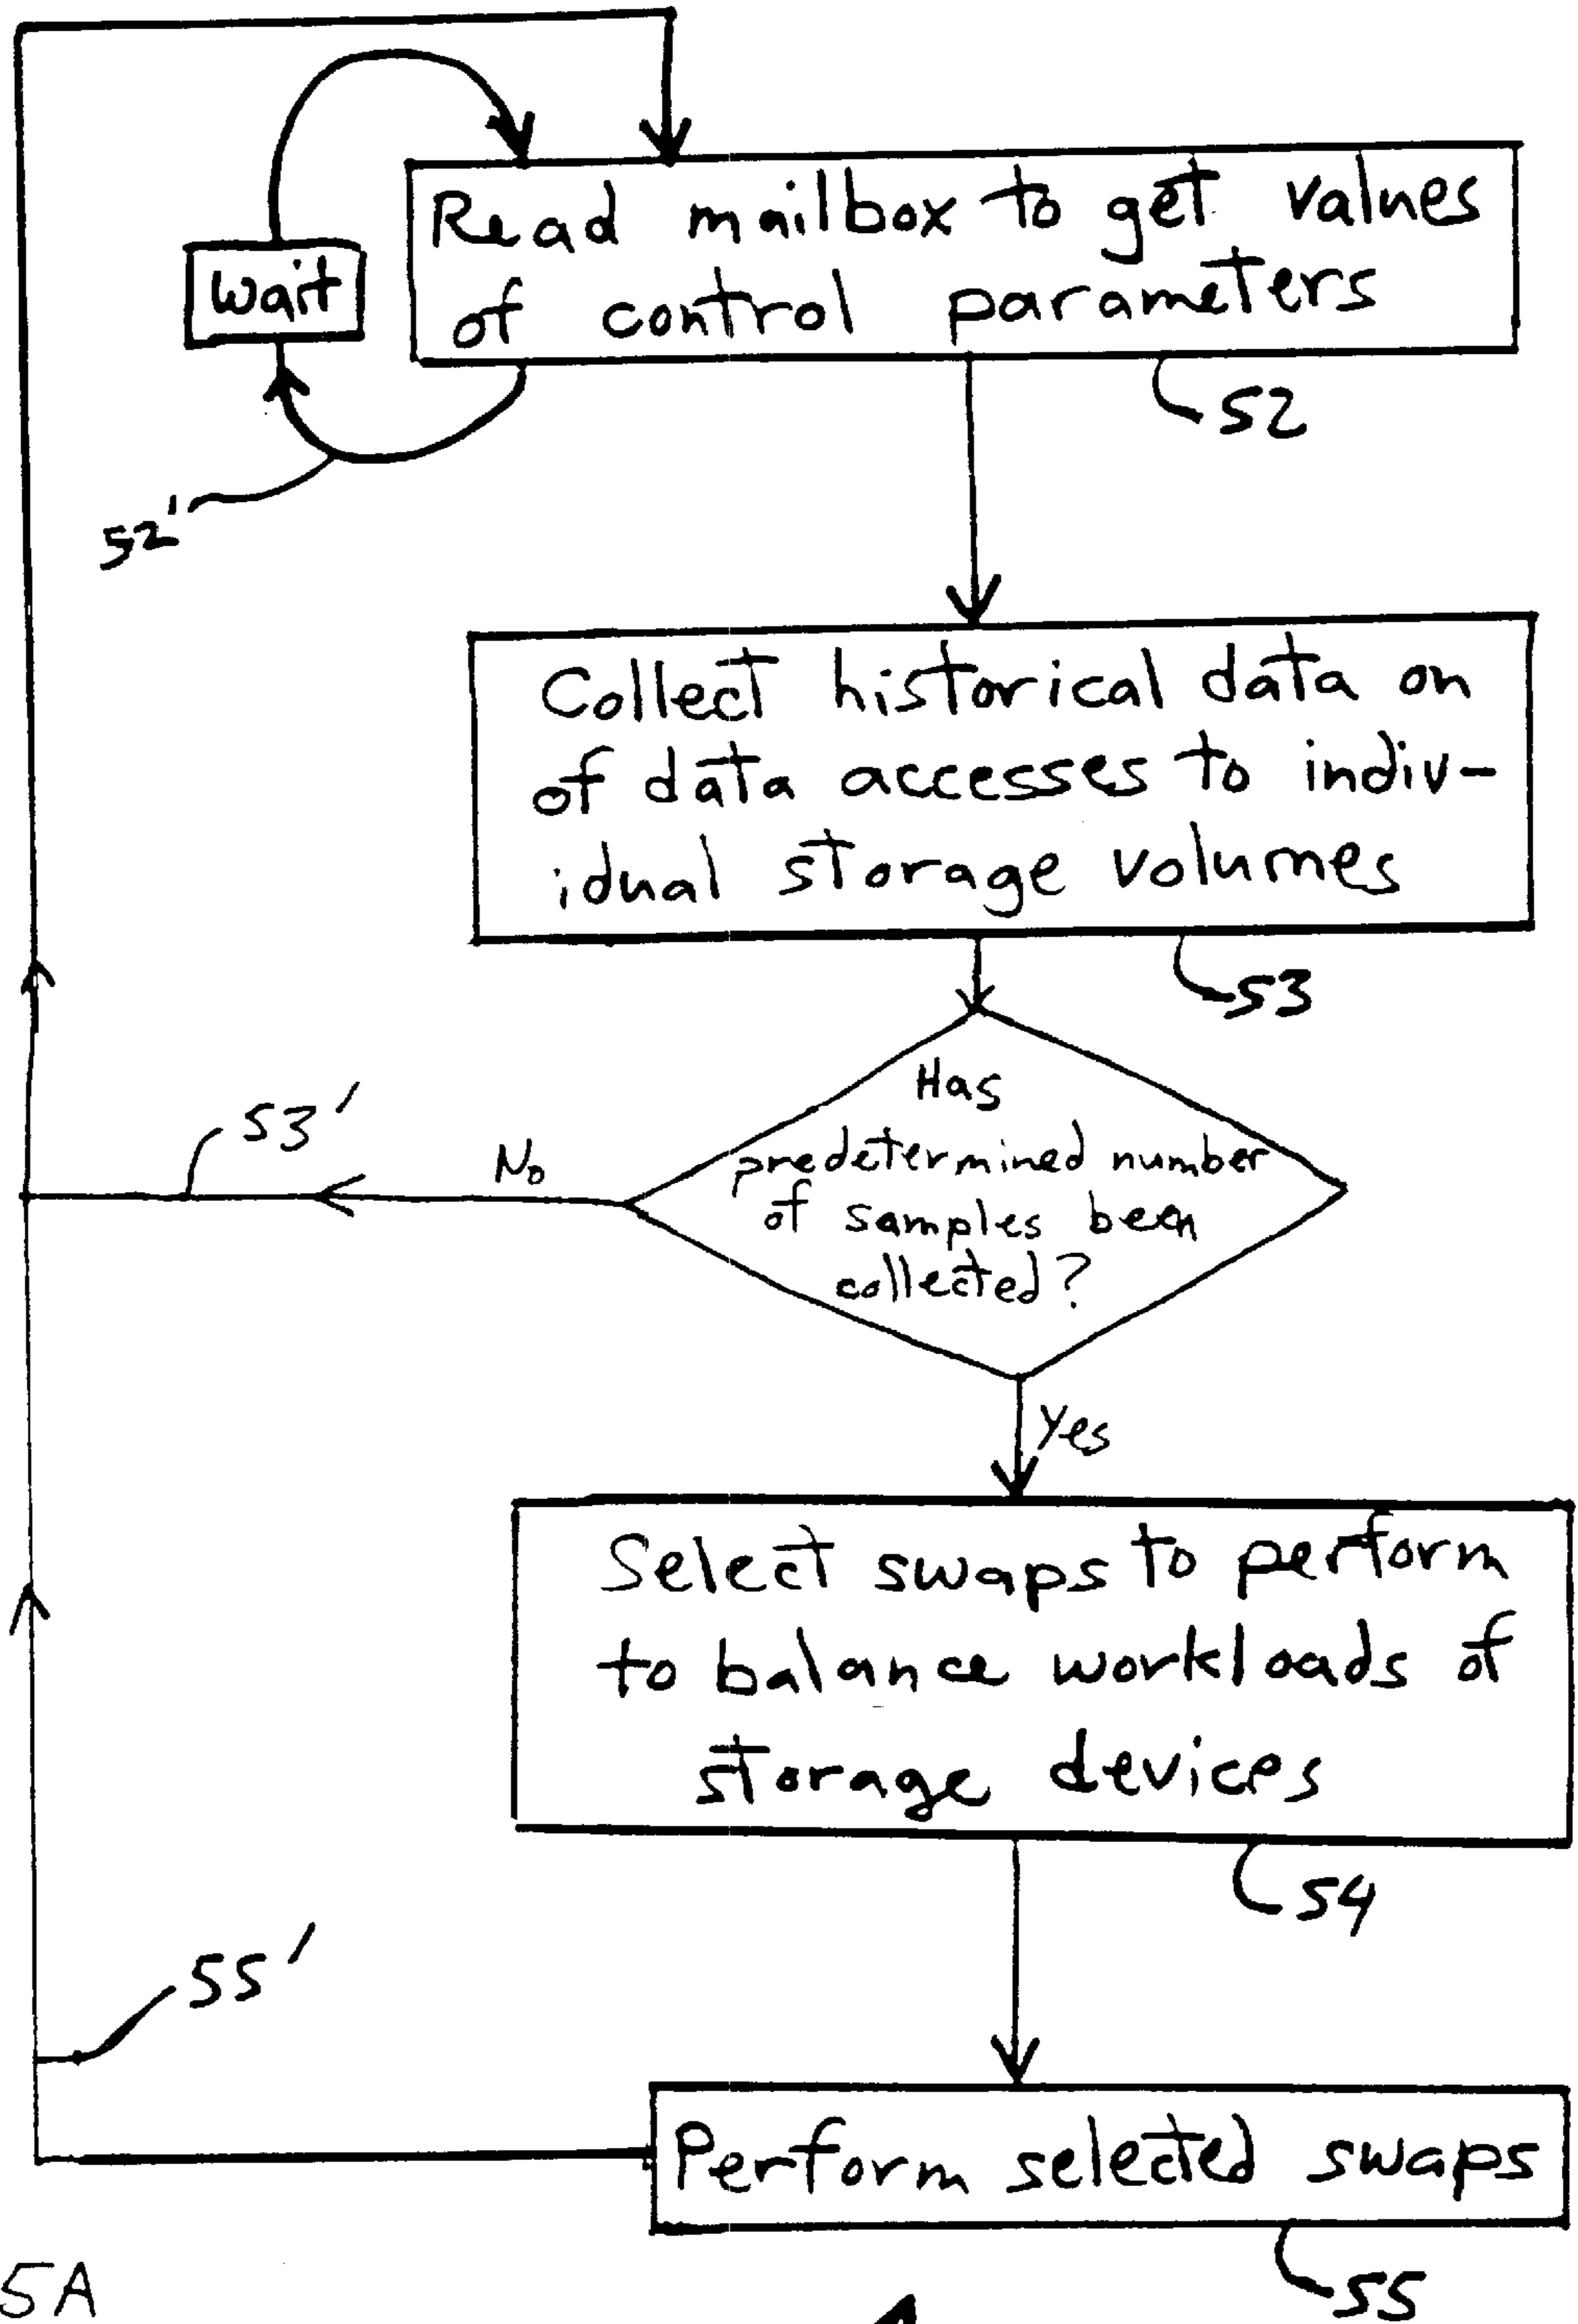 Read mailbox to get values
of control parameters
wait
52
52'
Collect historical data on
of data accesses to indiv-
idual storage volumes
53
Has
predetermined number
of samples been
collected?
53'
No
Yes
Select swaps to perform
to balance workloads of
storage devices
54
55'
Perform selected swaps
55
5A